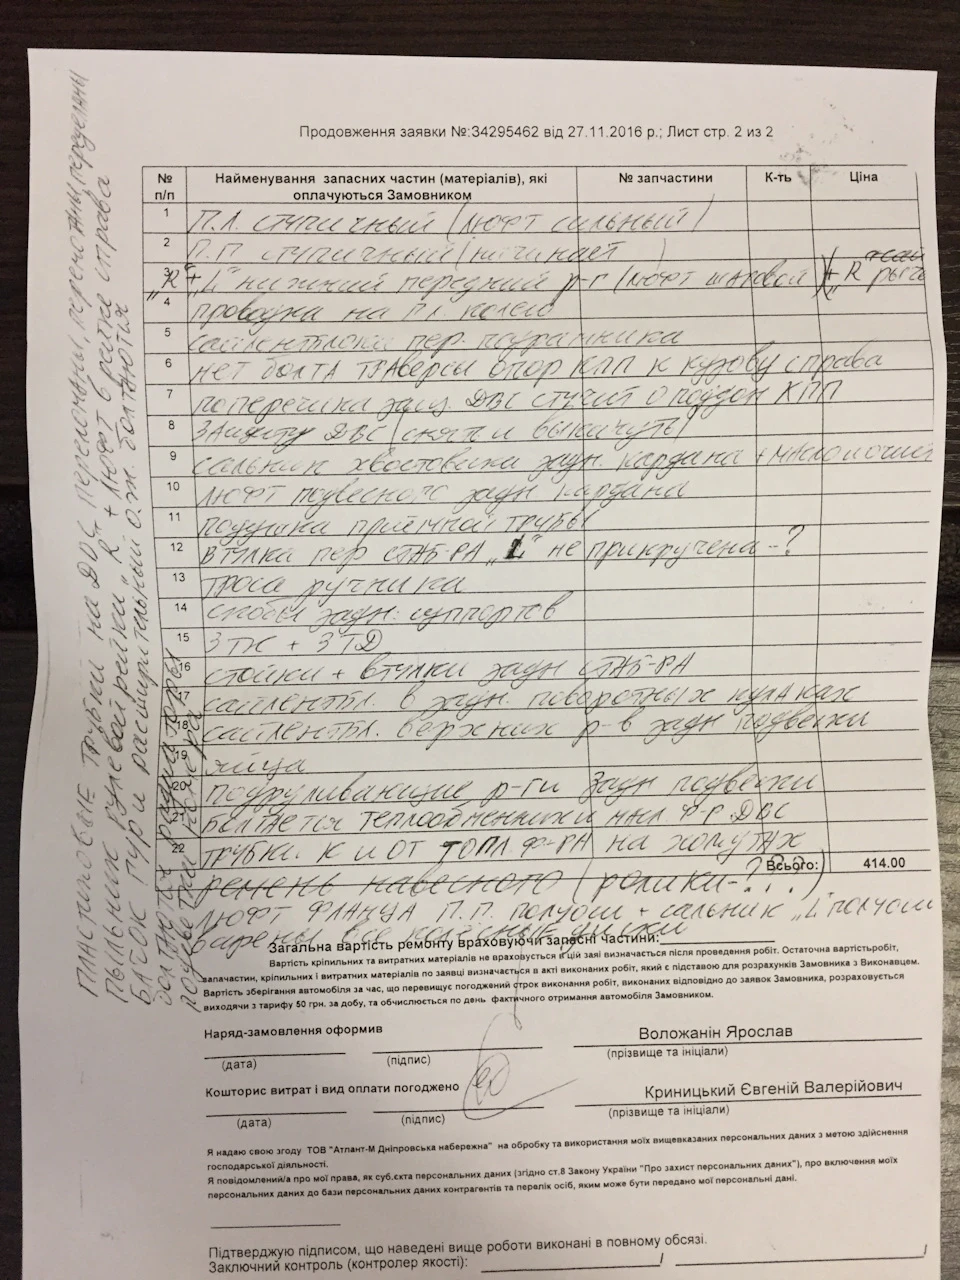 Продовження заявки №:34295462 від 27.11.2016 р.; Лист стр. 2 из 2
№ п/п
Найменування запасних частин (матеріалів), які оплачуються Замовником
№ запчастини
К-ть
Ціна
1 П.Л. ступичный (люфт сильный)
2 П.П ступичный (начинает)
3 "R" + "L" нижний передний р-г (люфт шаровой) + R
4 проводка на П.Л. колесо
5 сайлентблоки пер. подрамника
6 нет болта траверсы опор КПП к кузову справа
7 поперечина защ. ДВС стучит о поддон КПП
8 защиту ДВС (снять и выкинуть)
9 сальник хвостовика задн. кардана +
10 люфт подвесного задн кардана
11 подушка приемной трубы
12 втулка пер стаб-ра "L" не прикручена -?
13 троса ручника
14 скобы задн. суппортов
15 ЗТК + ЗТД
16 стойки + втулки задн стаб-ра
17 сайлентбл. в задн. поворотных кулаках
18 сайлентбл. верхних р-в задн подвески
19 яйца
20 подруливающие р-ги задн подвески
21 болтается теплообменник и масл. ф-р ДВС
22 трубки к и от топл. ф-ра на хомутах
Всього: 414.00
ремень навесного (ролики-?..)
люфт фланца П.П. полуоси + сальник "L" полуоси
варены все
Загальна вартість ремонту враховуючи запасні частини:
Вартість кріпильних та витратних матеріалів не враховується в цій заяві визначається після проведення робіт. Остаточна вартістьробіт,
запачастин, кріпильних і витратних матеріалів по заявці визначається в акті виконаних робіт, який є підставою для розрахунків Замовника з Виконавцем.
Вартість зберігання автомобіля за час, що перевищує погоджений строк виконання робіт, виконаних відповідно до заявок Замовника, розраховується
виходячи з тарифу 50 грн. за добу, та обчислюється по день фактичного отримання автомобіля Замовником.
Наряд-замовлення оформив
Воложанін Ярослав
(дата) (підпис) (прізвище та ініціали)
Кошторис витрат і вид оплати погоджено
Криницький Євгеній Валерійович
(дата) (підпис) (прізвище та ініціали)
Я надаю свою згоду ТОВ "Атлант-М Дніпровська набережна" на обробку та використання моїх вищевказаних персональних даних з метою здійснення
господарської діяльності.
Я повідомлений/а про мої права, як суб.єкта персональних даних (згідно ст.8 Закону України "Про захист персональних даних"), про включення моїх
персональних даних до бази персональних даних контрагентів та перелік осіб, яким може бути передано мої персональні дані.
Підтверджую підписом, що наведені вище роботи виконані в повному обсязі.
Заключний контроль (контролер якості): / /
пластиковые трубки на ДВС переломаны, переделаны
пыльник рулевой рейки "R" + люфт в рейке справа
бачок ГУР и расширительный о.ж. болтаются